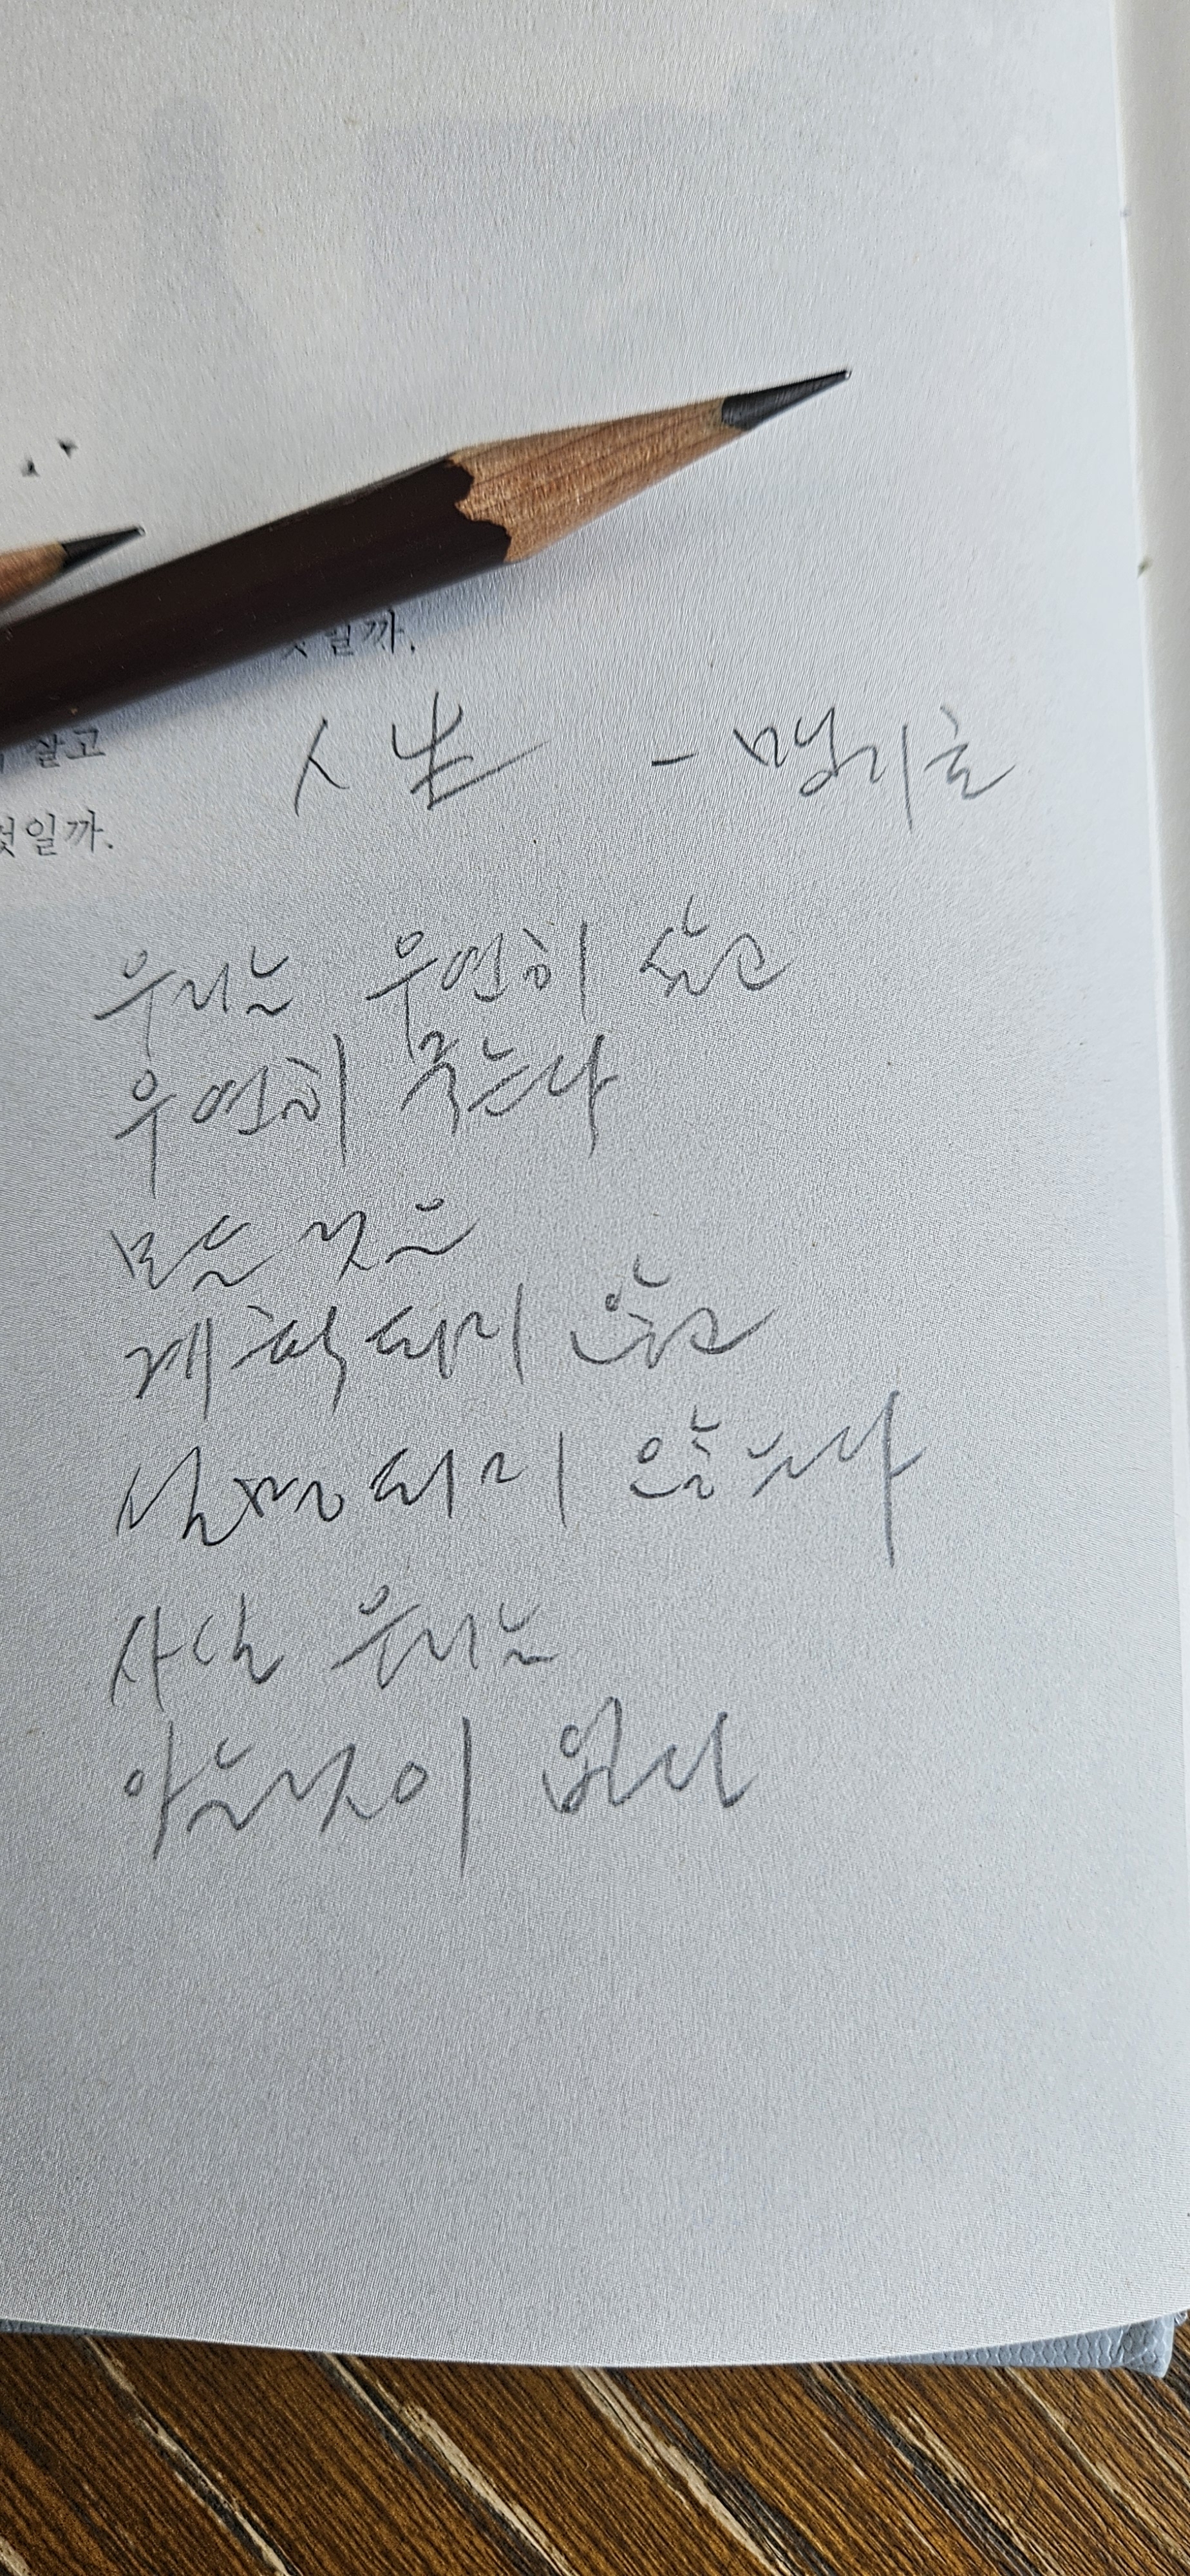 일까.
살고
것일까.
人生 - 맹기호
우리는 우연히 살고
우연히 죽는다
모든 것은
계획되지 않고
설명되지 않는다
사실 우리는
아는것이 없다